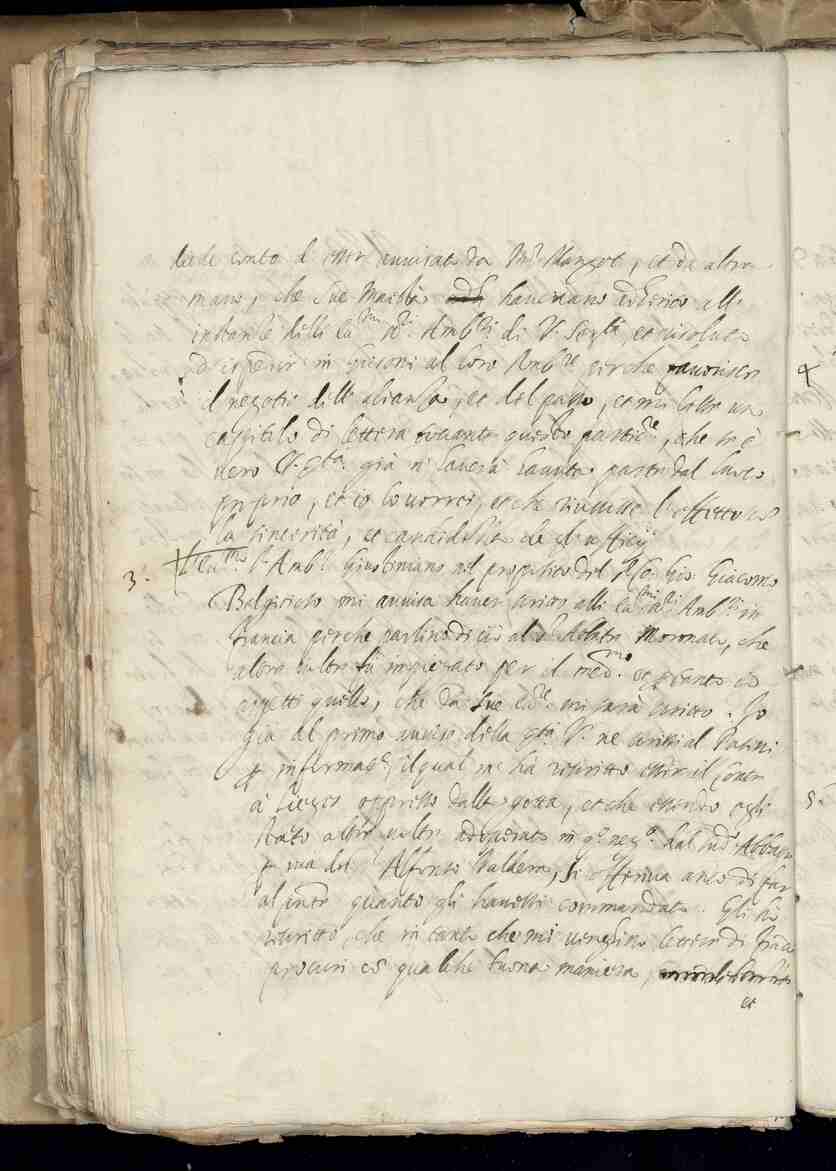 conto d esser avvisato da Mr Mangot, et da altra
mano, che Sue Maestà haveriano aderito all
instanze delli Ecc.mi S.ri Amb.ri di V. Ser.tà, et risoluto
d'ispedir in Grisoni al loro Amb.re perche favorisca
il negotio dell alianza, et del passo, et mi lesse un
capitolo di lettera toccante questo partic.re, che se è
vero V. S.tà già n' haverà havuto parte dal luoco
proprio, et io lo vorrei, et che riuscisse l'effetto con
la sincerità, et candidezza de gl'ufficij
3. L'Ecc.mo S.r Amb.r Giustiniano nel proposito del S.r Co: Gio: Giacomo
Belgioioso mi avvisa haver scritto alli Ecc.mi S.ri Amb.ri in
Francia perche parlino di ciò al S.r Abbate, che
altra volta fù impiegato per il med.mo et pertanto io
aspetto quello, che da Sue Ecc.e mi sarà scritto. Io
già al primo avviso della S.tà V. ne scrissi al Pasini
p informat.e, il qual me ha rescritto esser il Conte
à Lieges oppresso dalla gotta, et che essendo egli
stato altre volte adoperato in q.o neg.o dal sud.o Abbate
p via del S.r Alfonso Valdera, si offeriva anco di far
al pnte quanto gli havessi commandato. Gli hò
rescritto, che in tanto che mi venghino lettere di Franc.a
procuri cõ qualche buona maniera,
et